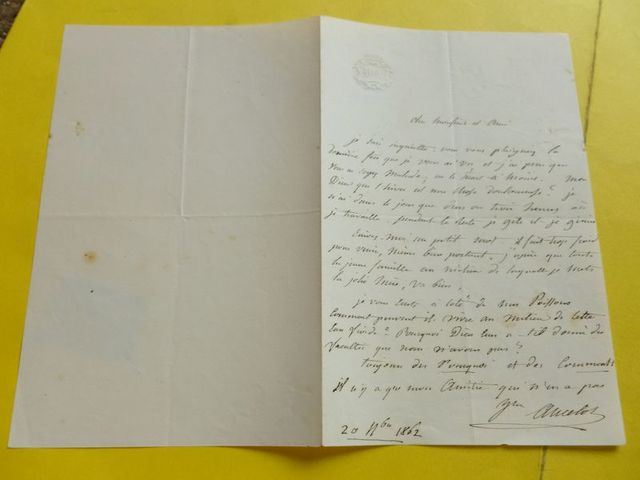 Cher Monsieur et Ami
je suis inquiette, vous vous plaigniez la
dernière fois que je vous ai vu et j'ai peur que
vous ne soyez malade, ou le
Dieu que l'hiver est une chose douloureuse! je
n'ai dans le jour que deux ou trois heures où
je travaille. pendant le reste je et je
Ecrivez-moi un petit mot il fait trop froid
pour venir, même bien portant. j'espère que toute
la jeune famille au milieu de laquelle je mets
la jolie mère, va bien,
je vous écris à côté de mes Poissons
Comment peuvent-il vivre au milieu de cette
Eau froide? Pourquoi Dieu leur a-t-il donné des
facultés que nous n'avons pas?
toujours des Pourquoi et des Comments
il n'y a que mon Amitié qui n'en a pas
Ancelot
20 1862